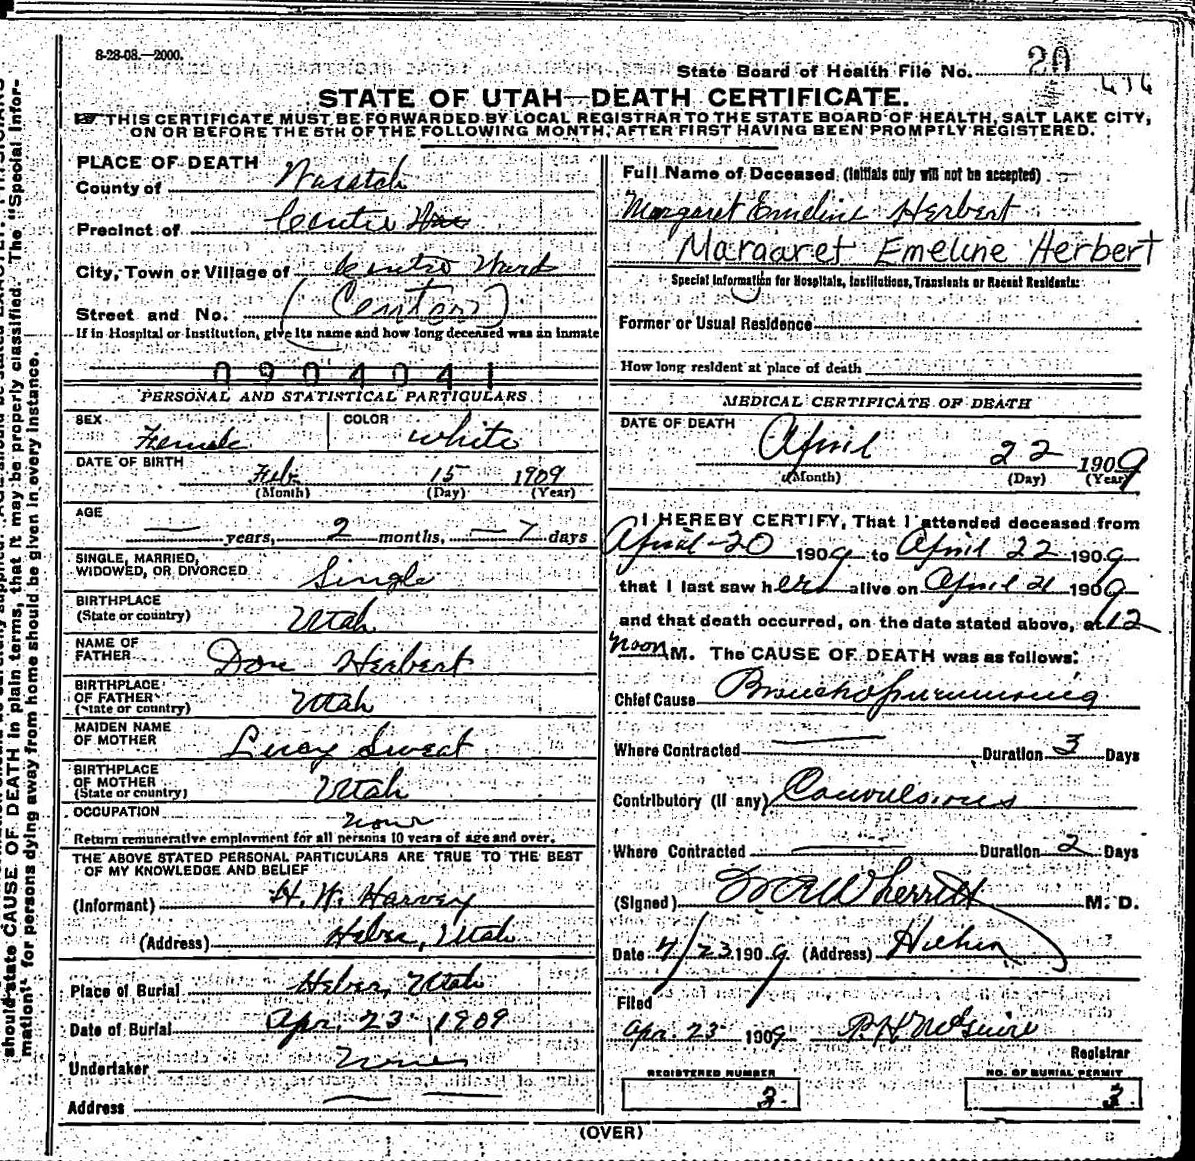 8-28-08.—2000.
State Board of Health File No. 20
STATE OF UTAH—DEATH CERTIFICATE.
☞ THIS CERTIFICATE MUST BE FORWARDED BY LOCAL REGISTRAR TO THE STATE BOARD OF HEALTH, SALT LAKE CITY,
ON OR BEFORE THE 5TH OF THE FOLLOWING MONTH, AFTER FIRST HAVING BEEN PROMPTLY REGISTERED.
PLACE OF DEATH
County of Wasatch
Precinct of
City, Town or Village of Ward
Street and No. (Center)
If in Hospital or Institution, give its name and how long deceased was an inmate
0904041
PERSONAL AND STATISTICAL PARTICULARS
SEX Female COLOR white
DATE OF BIRTH Feb 15 1909
(Month) (Day) (Year)
AGE
— years, 2 months, — 7 days
SINGLE, MARRIED,
WIDOWED, OR DIVORCED Single
BIRTHPLACE
(State or country) Utah
NAME OF
FATHER Don Herbert
BIRTHPLACE
OF FATHER
(State or country) Utah
MAIDEN NAME
OF MOTHER Lucy Sweat
BIRTHPLACE
OF MOTHER
(State or country) Utah
OCCUPATION none
Return remunerative employment for all persons 10 years of age and over.
THE ABOVE STATED PERSONAL PARTICULARS ARE TRUE TO THE BEST
OF MY KNOWLEDGE AND BELIEF
(Informant) H. W. Harvey
(Address) Heber, Utah
Place of Burial Heber, Utah
Date of Burial Apr. 23 1909
Undertaker None
Address — —
Full Name of Deceased. (Initials only will not be accepted)
Margaret Emeline Herbert
Margaret Emeline Herbert
Special Information for Hospitals, Institutions, Transients or Recent Residents:
Former or Usual Residence
How long resident at place of death
MEDICAL CERTIFICATE OF DEATH
DATE OF DEATH
April 22 1909
(Month) (Day) (Year)
I HEREBY CERTIFY, That I attended deceased from
April 20 1909 to April 22 1909
that I last saw her alive on April 21 1909
and that death occurred, on the date stated above, at 12
noon M. The CAUSE OF DEATH was as follows:
Chief Cause Bronchopneumonia
Where Contracted — Duration 3 Days
Contributory (if any) Convulsions
Where Contracted — Duration 2 Days
(Signed) Wherritt M. D.
Date 4/23 1909 (Address) Heber
Filed
Apr. 23 1909 McGuire
Registrar
REGISTERED NUMBER
3.
NO. OF BURIAL PERMIT
3
(OVER)
should state CAUSE OF DEATH in plain terms, that it may be properly classified. The "Special Infor-
mation" for persons dying away from home should be given in every instance.